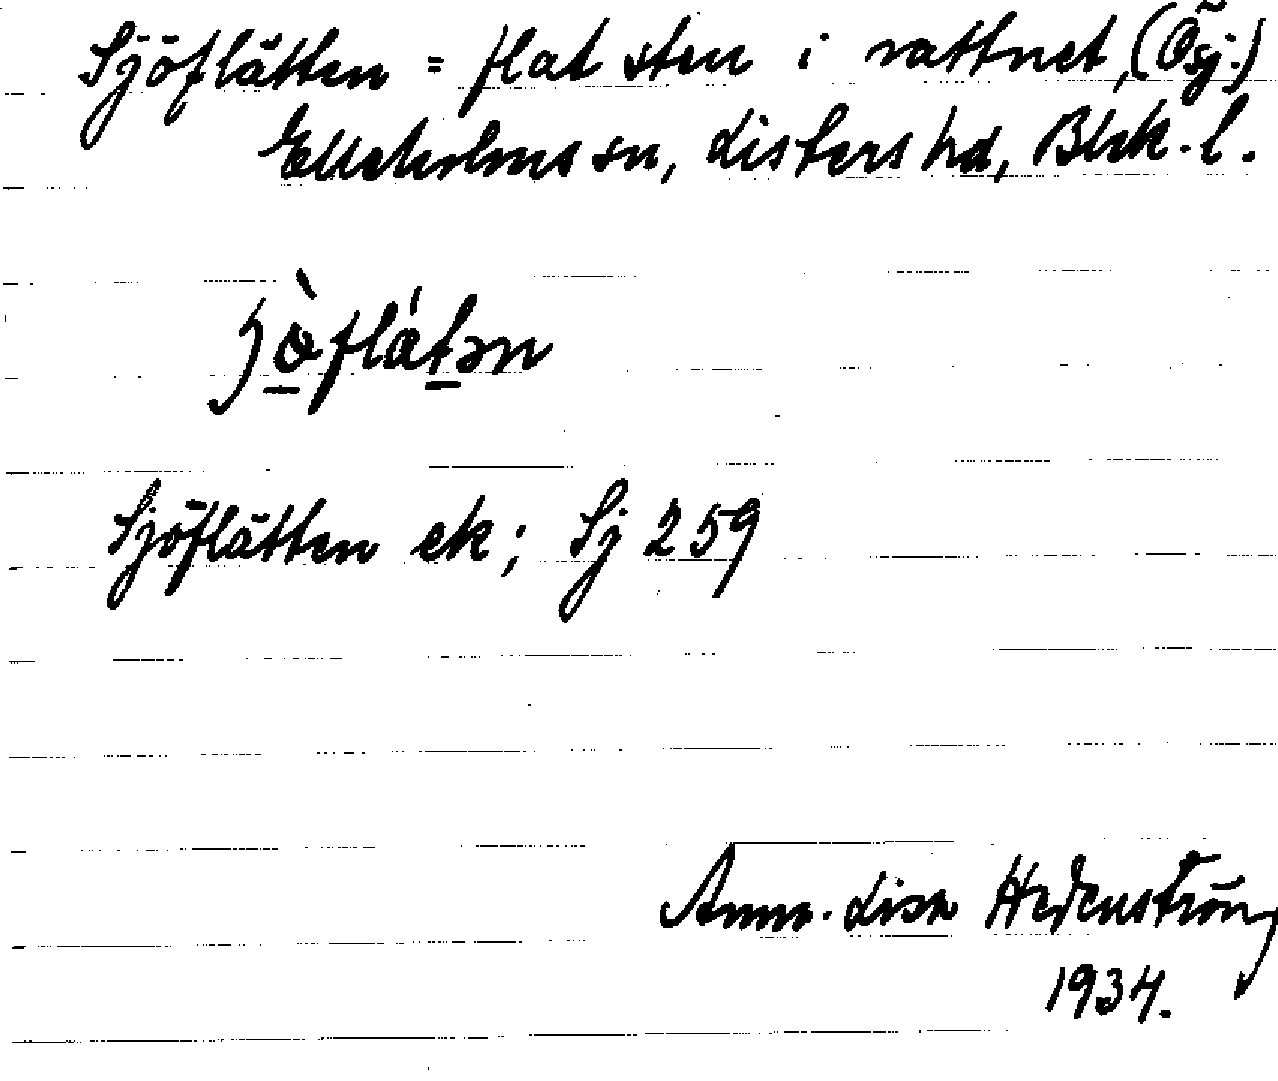 Sjöflätten = flat sten i vattnet, (Ösj.)
Elleholms sn, Listers hd, Blek. l.
Sjöflätten ek; Sj 259
Anna-Lisa Hedenström
1934.